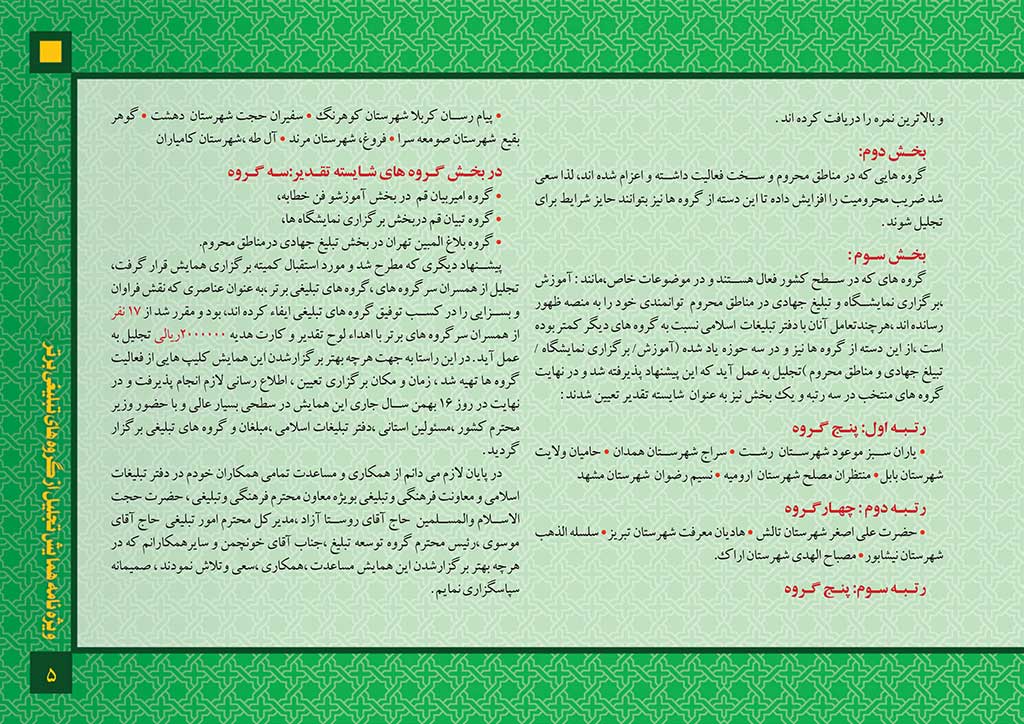 و بالاترین نمره را دریافت کرده اند .
بخش دوم:
گروه هایی که در مناطق محروم و سخت فعالیت داشته و اعزام شده اند، لذا سعی
شد ضریب محرومیت را افزایش داده تا این دسته از گروه ها نیز بتوانند حایز شرایط برای
تجلیل شوند .
بخش سوم :
گروه های که در سطح کشور فعال هستند و در موضوعات خاص،مانند : آموزش
،برگزاری نمایشگاه و تبلیغ جهادی در مناطق محروم توانمندی خود را به منصه ظهور
رسانده اند ،هر چندتعامل آنان با دفتر تبلیغات اسلامی نسبت به گروه های دیگر کمتر بوده
است ،از این دسته از گروه ها نیز و در سه حوزه یاد شده (آموزش/ برگزاری نمایشگاه /
تبیلغ جهادی و مناطق محروم )تجلیل به عمل آید که این پیشنهاد پذیرفته شد و در نهایت
گروه های منتخب در سه رتبه و یک بخش نیز به عنوان شایسته تقدیر تعیین شدند :
رتبه اول: پنج گروه
• یاران سبز موعود شهرستان رشت • سراج شهرستان همدان • حامیان ولایت
شهرستان بابل • منتظران مصلح شهرستان ارومیه • نسیم رضوان شهرستان مشهد
رتبه دوم : چهارگروه
• حضرت علی اصغر شهرستان تالش • هادیان معرفت شهرستان تبریز • سلسله الذهب
شهرستان نیشابور • مصباح الهدی شهرستان اراک.
رتبه سوم: پنج گروه
• پیام رسان کربلا شهرستان کوهرنگ • سفیران حجت شهرستان دهشت • گوهر
بقیع شهرستان صومعه سرا • فروغ، شهرستان مرند • آل طه ،شهرستان کامیاران
در بخش گروه های شایسته تقدیر:سه گروه
• گروه امیربیان قم در بخش آموزشو فن خطابه،
• گروه تبیان قم دربخش برگزاری نمایشگاه ها،
• گروه بلاغ المبین تهران در بخش تبلیغ جهادی درمناطق محروم.
پیشنهاد دیگری که مطرح شد و مورد استقبال کمیته برگزاری همایش قرار گرفت،
تجلیل از همسران سرگروه های ،گروه های تبلیغی برتر ،به عنوان عناصری که نقش فراوان
و بسزایی را در کسب توفیق گروه های تبلیغی ایفاء کرده اند، بود و مقرر شد از ۱۷ نفر
از همسران سرگروه های برتر با اهداء لوح تقدیر و کارت هدیه ۲۰۰۰۰۰۰ریالی تجلیل به
عمل آید . در این راستا به جهت هرچه بهتر برگزارشدن این همایش کلیپ هایی از فعالیت
گروه ها تهیه شد ، زمان و مکان برگزاری تعیین ، اطلاع رسانی لازم انجام پذیرفت و در
نهایت در روز ۱۶ بهمن سال جاری این همایش در سطحی بسیار عالی و با حضور وزیر
محترم کشور ،مسئولین استانی ،دفتر تبلیغات اسلامی ،مبلغان و گروه های تبلیغی برگزار
گردید .
در پایان لازم می دانم از همکاری و مساعدت تمامی همکاران خودم در دفتر تبلیغات
اسلامی و معاونت فرهنگی وتبلیغی بویژه معاون محترم فرهنگی وتبلیغی ، حضرت حجت
الاسلام والمسلمین حاج آقای روستا آزاد ،مدیرکل محترم امور تبلیغی حاج آقای
موسوی ،رئیس محترم گروه توسعه تبلیغ ،جناب آقای خونچمن و سایرهمکارانم که در
هرچه بهتر برگزارشدن این همایش مساعدت ،همکاری ،سعی وتلاش نمودند ، صمیمانه
سپاسگزاری نمایم .
ویژه نامه همایش تجلیل از گروه های تبلیغی برتر
۵